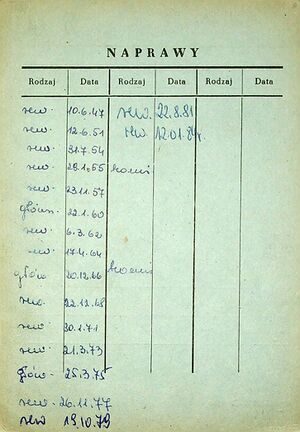 NAPRAWY
Rodzaj Data Rodzaj Data Rodzaj Data
rew. 10.6.47 rew. 22.8.81
rew. 12.6.51 rew. 12.01.84r.
rew. 31.7.54
rew. 28.1.55
rew. 23.11.57
główn. 22.1.60
rew. 6.3.62
rew. 17.4.64
główn. 20.12.66
rew. 22.12.68
rew. 30.1.71
rew. 21.3.73
główn. 25.3.75
rew. 26.11.77
rew 19.10.79